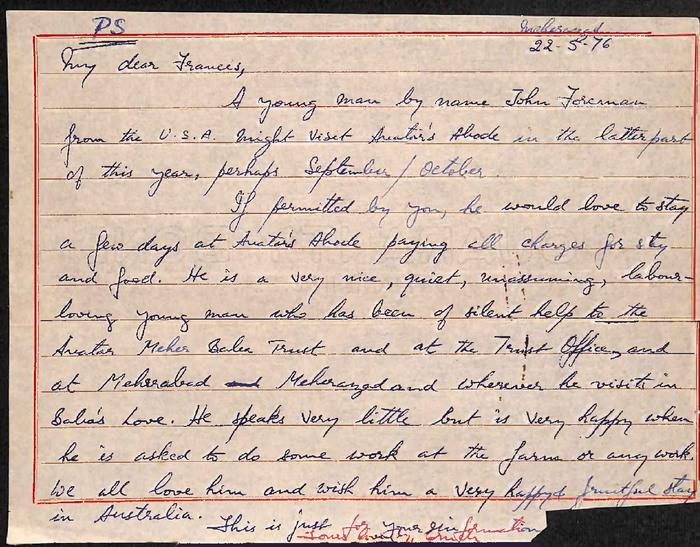 PS
Meherazad
22-5-76
My dear Frances,
A young man by name John Foreman
from the U.S.A. might visit Avatar's Abode in the latter part
of this year, perhaps September / October.
If permitted by you, he would love to stay
a few days at Avatar's Abode paying all charges for sty
and food. He is a very nice, quiet, unassuming, labour-
loving young man who has been of silent help to the
Avatar Meher Baba Trust and at the Trust Office, and
at Meherabad and Meherazad and wherever he visits in
Baba's Love. He speaks very little but is very happy when
he is asked to do some work at the farm or any work.
We all love him and wish him a very happy & fruitful stay
in Australia.
This is just for your information